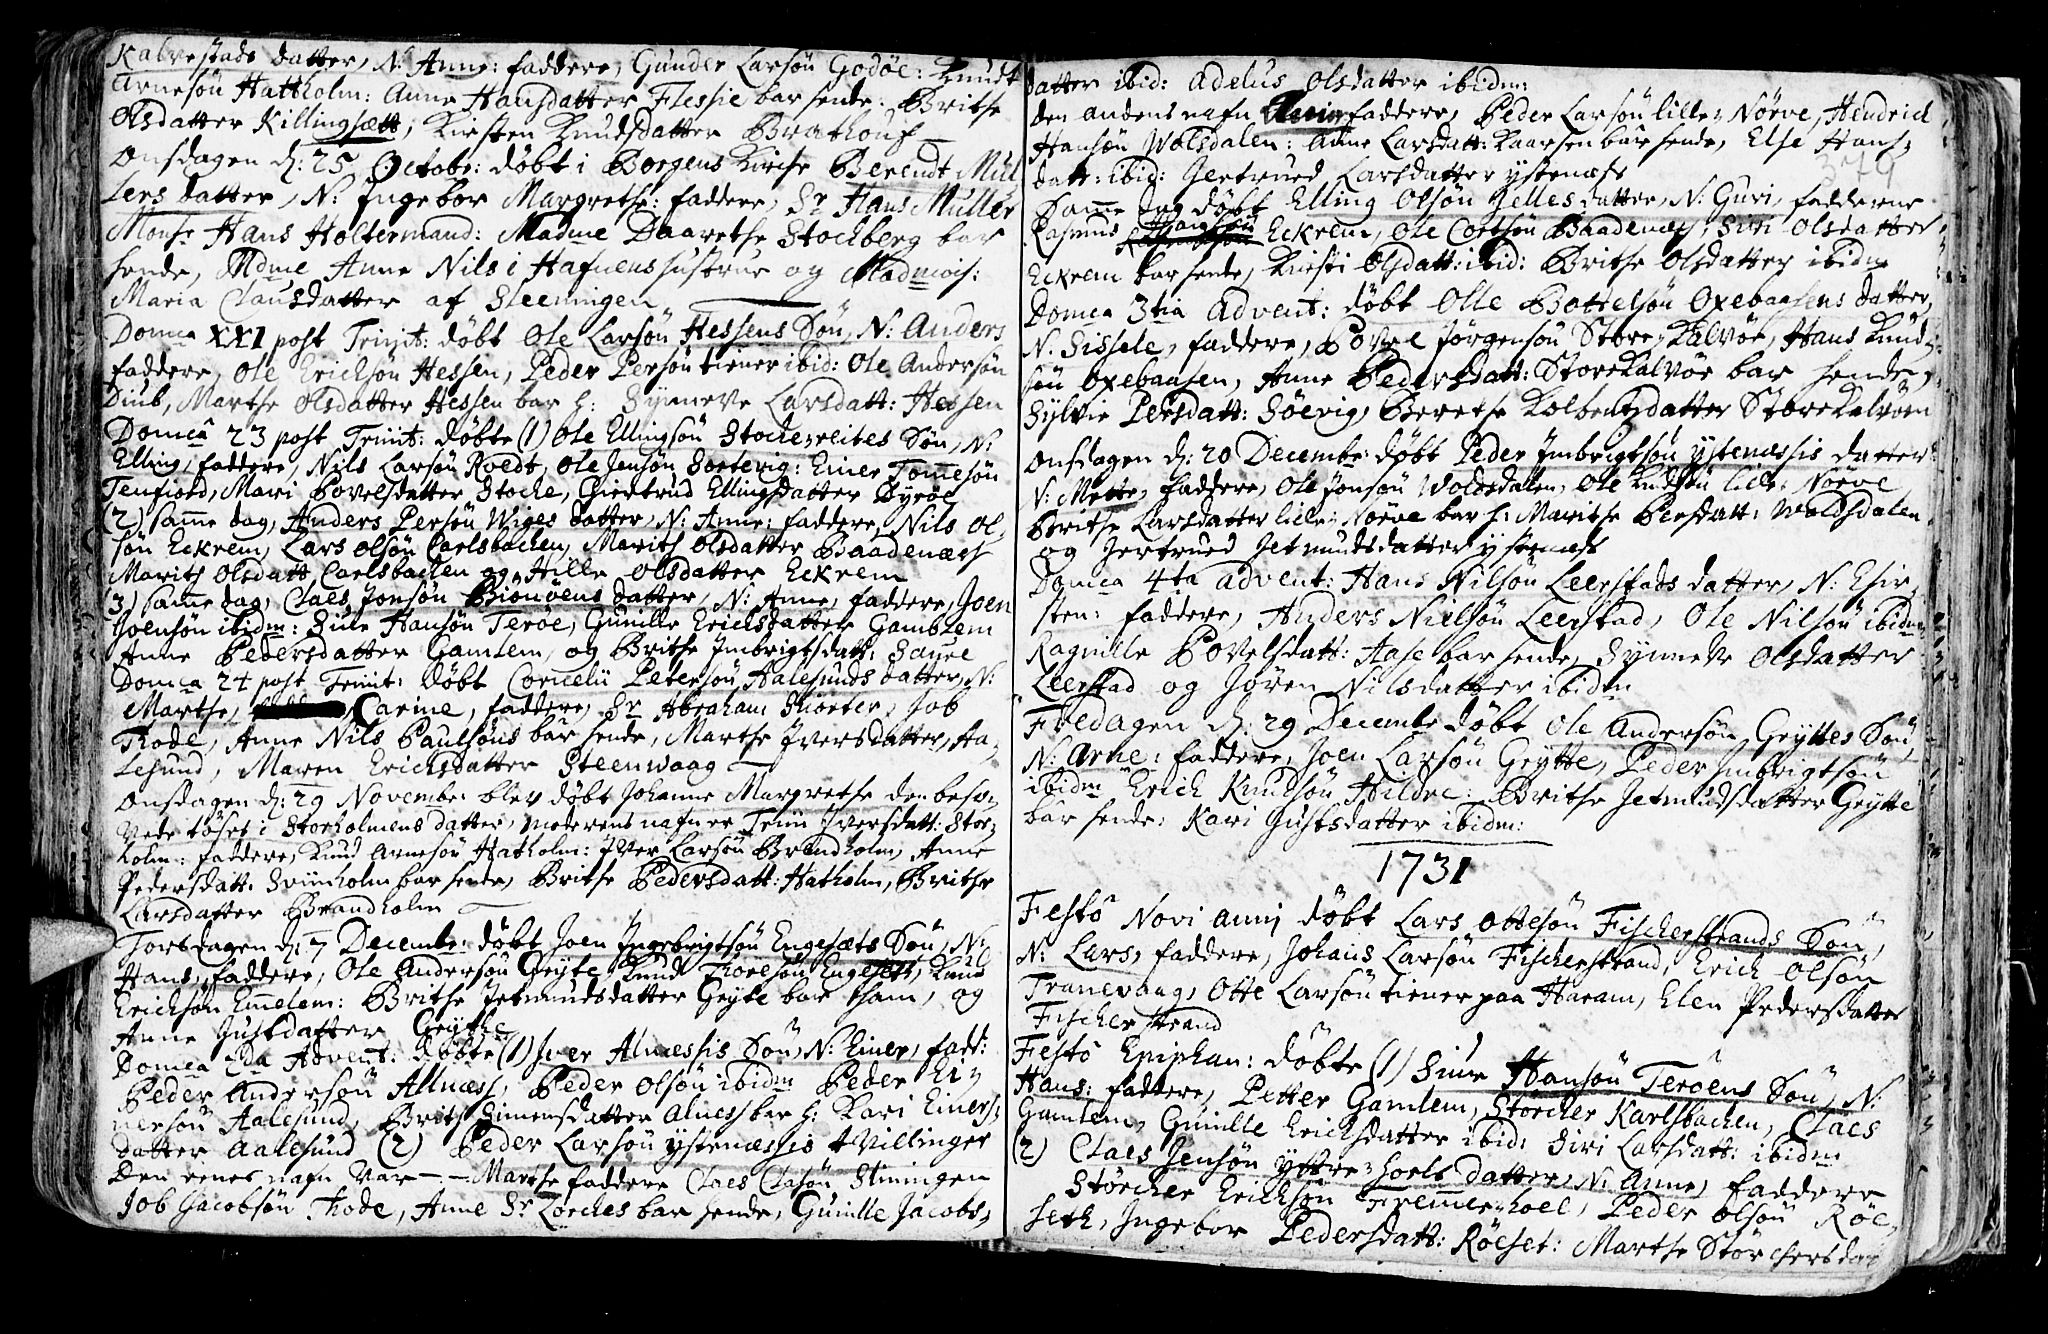 Kalvestads datter, N: Anne: faddere, Gunder Larsøn Godøe: Knudt
Arnesøn Hattholm: Anne Hansdatter Flessie bar hende: Brithe
Olsdatter Killingsætt, Kirsten Knudsdatter
Onsdagen d: 25 Octobr: døbt i Borgens Kirke Berendt Mül
lers datter, N: Ingebor Margrethe: faddere, Sr Hans Müller
Monsr Hans Holtermand: Madme Daarethe Stockberg bar
hende, Mdme Anne Nils i Hafnens hustrue og Madmois:
Maria Clausdatter af Sleeningen
Domca XXI post Trinit: døbt Ole Larsøn Hessens Søn, N: Anders
faddere, Ole Erichsøn Hessen, Peder Persøn tiener ibid: Ole Andersøn
Diub, Marthe Olsdatter Hessen bar h: Synneve Larsdatt: Hessen
Domca 23 post Trinit: døbte (1) Ole Ellingsøn Stochereites Søn, N:
Elling, faddere, Nils Larsøn Roedt, Ole Jensøn Sortevig: Einer Tommesøn
Tenfiord, Mari Povelsdatter Stoche, Giertrud Ellingsdatter Byrøe
(2) samme dag, Anders Persøn Wiges datter, N: Anne: faddere, Nils Ol-
søn Eckrem, Lars Olsøn Carlsbachen, Marith Olsdatter Baadenæs
Marith Olsdatt Carlsbachen og Hille Olsdatter Eckrem
3) samme dag, Claes Jonsøn Biønøens datter, N: Anne, faddere, Joen
Joensøn ibidm: Siur Hansøn Terøe, Gunille Erichsdatter Gamblem
Anne Pedersdatter Gamlem, og Brithe Imbrigtsdatt:
Domca 24 post Trinit: døbt Cornelii Petersøn Aalesunds datter, N:
Marthe, Carine, faddere, Sr Abraham, Job
Thode, Anne Nils Paulsøns bar hende, Marthe Iversdatter, Aa-
lesund, Maren Erichsdatter Steenwaag
Onsdagen d: 29 November blev døbt Johanne Margrethe den beso-
vede tøset i Storholmens datter, moderens nafn er Iversdatt: Stor-
holm: faddere, Knud Arnesøn Hatholm: Iver Larsøn Brandholm, Anne
Pedersdatt: Sviinholm bar hende, Brithe Pedersdatt: Hatholm, Brithe
Larsdatter Brandholm
Torsdagen d: 7 Decembr: døbt Joen Ingebrigtsøn Engesæts Søn, N:
Hans, faddere, Ole Andersøn Gryte Knud Thoresøn Engeset, Knud
Erichsøn Emelem: Brithe Jetmundsdatter Gryte bar ham, og
Anne Justsdatter Grytte
Domca 2da Advent: døbte (1) Iver Alnessis Søn, N: Einer, fadd:
Peder Andersøn Allness, Peder Olsøn ibidm Peder Ei-
nersøn Aalesund, Brithe Simensdatter Alness bar h: Kari Einers-
datter Aalesund (2) Peder Larsøn ystenæssis tvillinger
Den eenes nafn var - - Marthe faddere Claes Clasøn Sliningen
Job Jacobsøn Thode, Anne Sr Lorches bar hende, Gunille Jacobs-
datter ibid: Adelus Olsdatter ibidm:
den andens nafn faddere, Peder Larsøn lille Nørve, Hendrich
Hansøn Wolsdalen: Anne Larsdatt: Kaarsen bar hende, Else Hans-
datt: ibid: Jertrued Larsdatter ystenæss
379
Samme dag døbt Elling Olsøn Jelles datter, N: Guri, fadderne
Rasmus Hansøn Eckrem, Ole Cortsøn Baadenæs, Siri Olsdatter
Eckrem bar hende, Kirsti Olsdatt: ibid: Brithe Olsdatter ibidm
Domca 3tia Advent: døbt Olle Bottelsøn Oxebaasens datter,
N: Sissele, faddere, Jørgensøn Store Kalvøe, Hans Knud-
søn Oxebaasen, Anne Pedersdatt: Store Kalvøe bar hende,
Sylvie Persdatt: Søevig, Berethe Kolbensdatter Store Kalvøen
Onsdagen d: 20 Decembr: døbt Peder Imbrigtsøn ystenæssis datter
N: Mette, faddere, Ole Jonsøn Woldsdalen, Ole Knudsøn lille Nørve
Brithe Larsdatter lille Nørve bar h: Marithe Persdatt: Woldsdalen
og Jertrued Jetmundsdatter ystenæss
Domca 4ta Advent: Hans Nilsøn Leerstads datter, N: Chir-
sten: faddere, Anders Nielsøn Leerstad, Ole Nilsøn ibidm
Ragnille Povelsdatt: Aase bar hende, Synneve Olsdatter
Leerstad og Jøren Nilsdatter ibidm
Fredagen d: 29 Decembr døbt Ole Andersøn Gryttes Søn,
N: Arne: faddere, Joen Larsøn Grytte, Peder Imbrigtsøn
ibidm Erich Knudsøn Hildre: Brithe Jetmundsdatter Grytte
bar hende: Kari Justsdatter ibidm:
1731
Festo Novi anni døbt Lars Ottesøn Fischerstrands Søn,
N: Lars, faddere, Johans Larsøn Fischerstrand, Erich Olsøn
Tranevaag, Otte Larsøn tiener paa Haram, Elen Pedersdatter
Fischerstrand
Festo Epiphan: døbte (1) Siur Hansøn Terøens Søn, N:
Hans: faddere, Petter Gamlem, Størcher Karlsbachen, Claes
Gamlem, Gunille Erichsdatter ibid: Siri Larsdatt: ibidm
(2) Claes Jensøn yttre-hoels datter, N: Anne, faddere
Størcher Erichsøn Fremmerhoel, Peder Olsøn Røe-
seth, Ingebor Pedersdatt: Røeset: Marthe Størchersdat